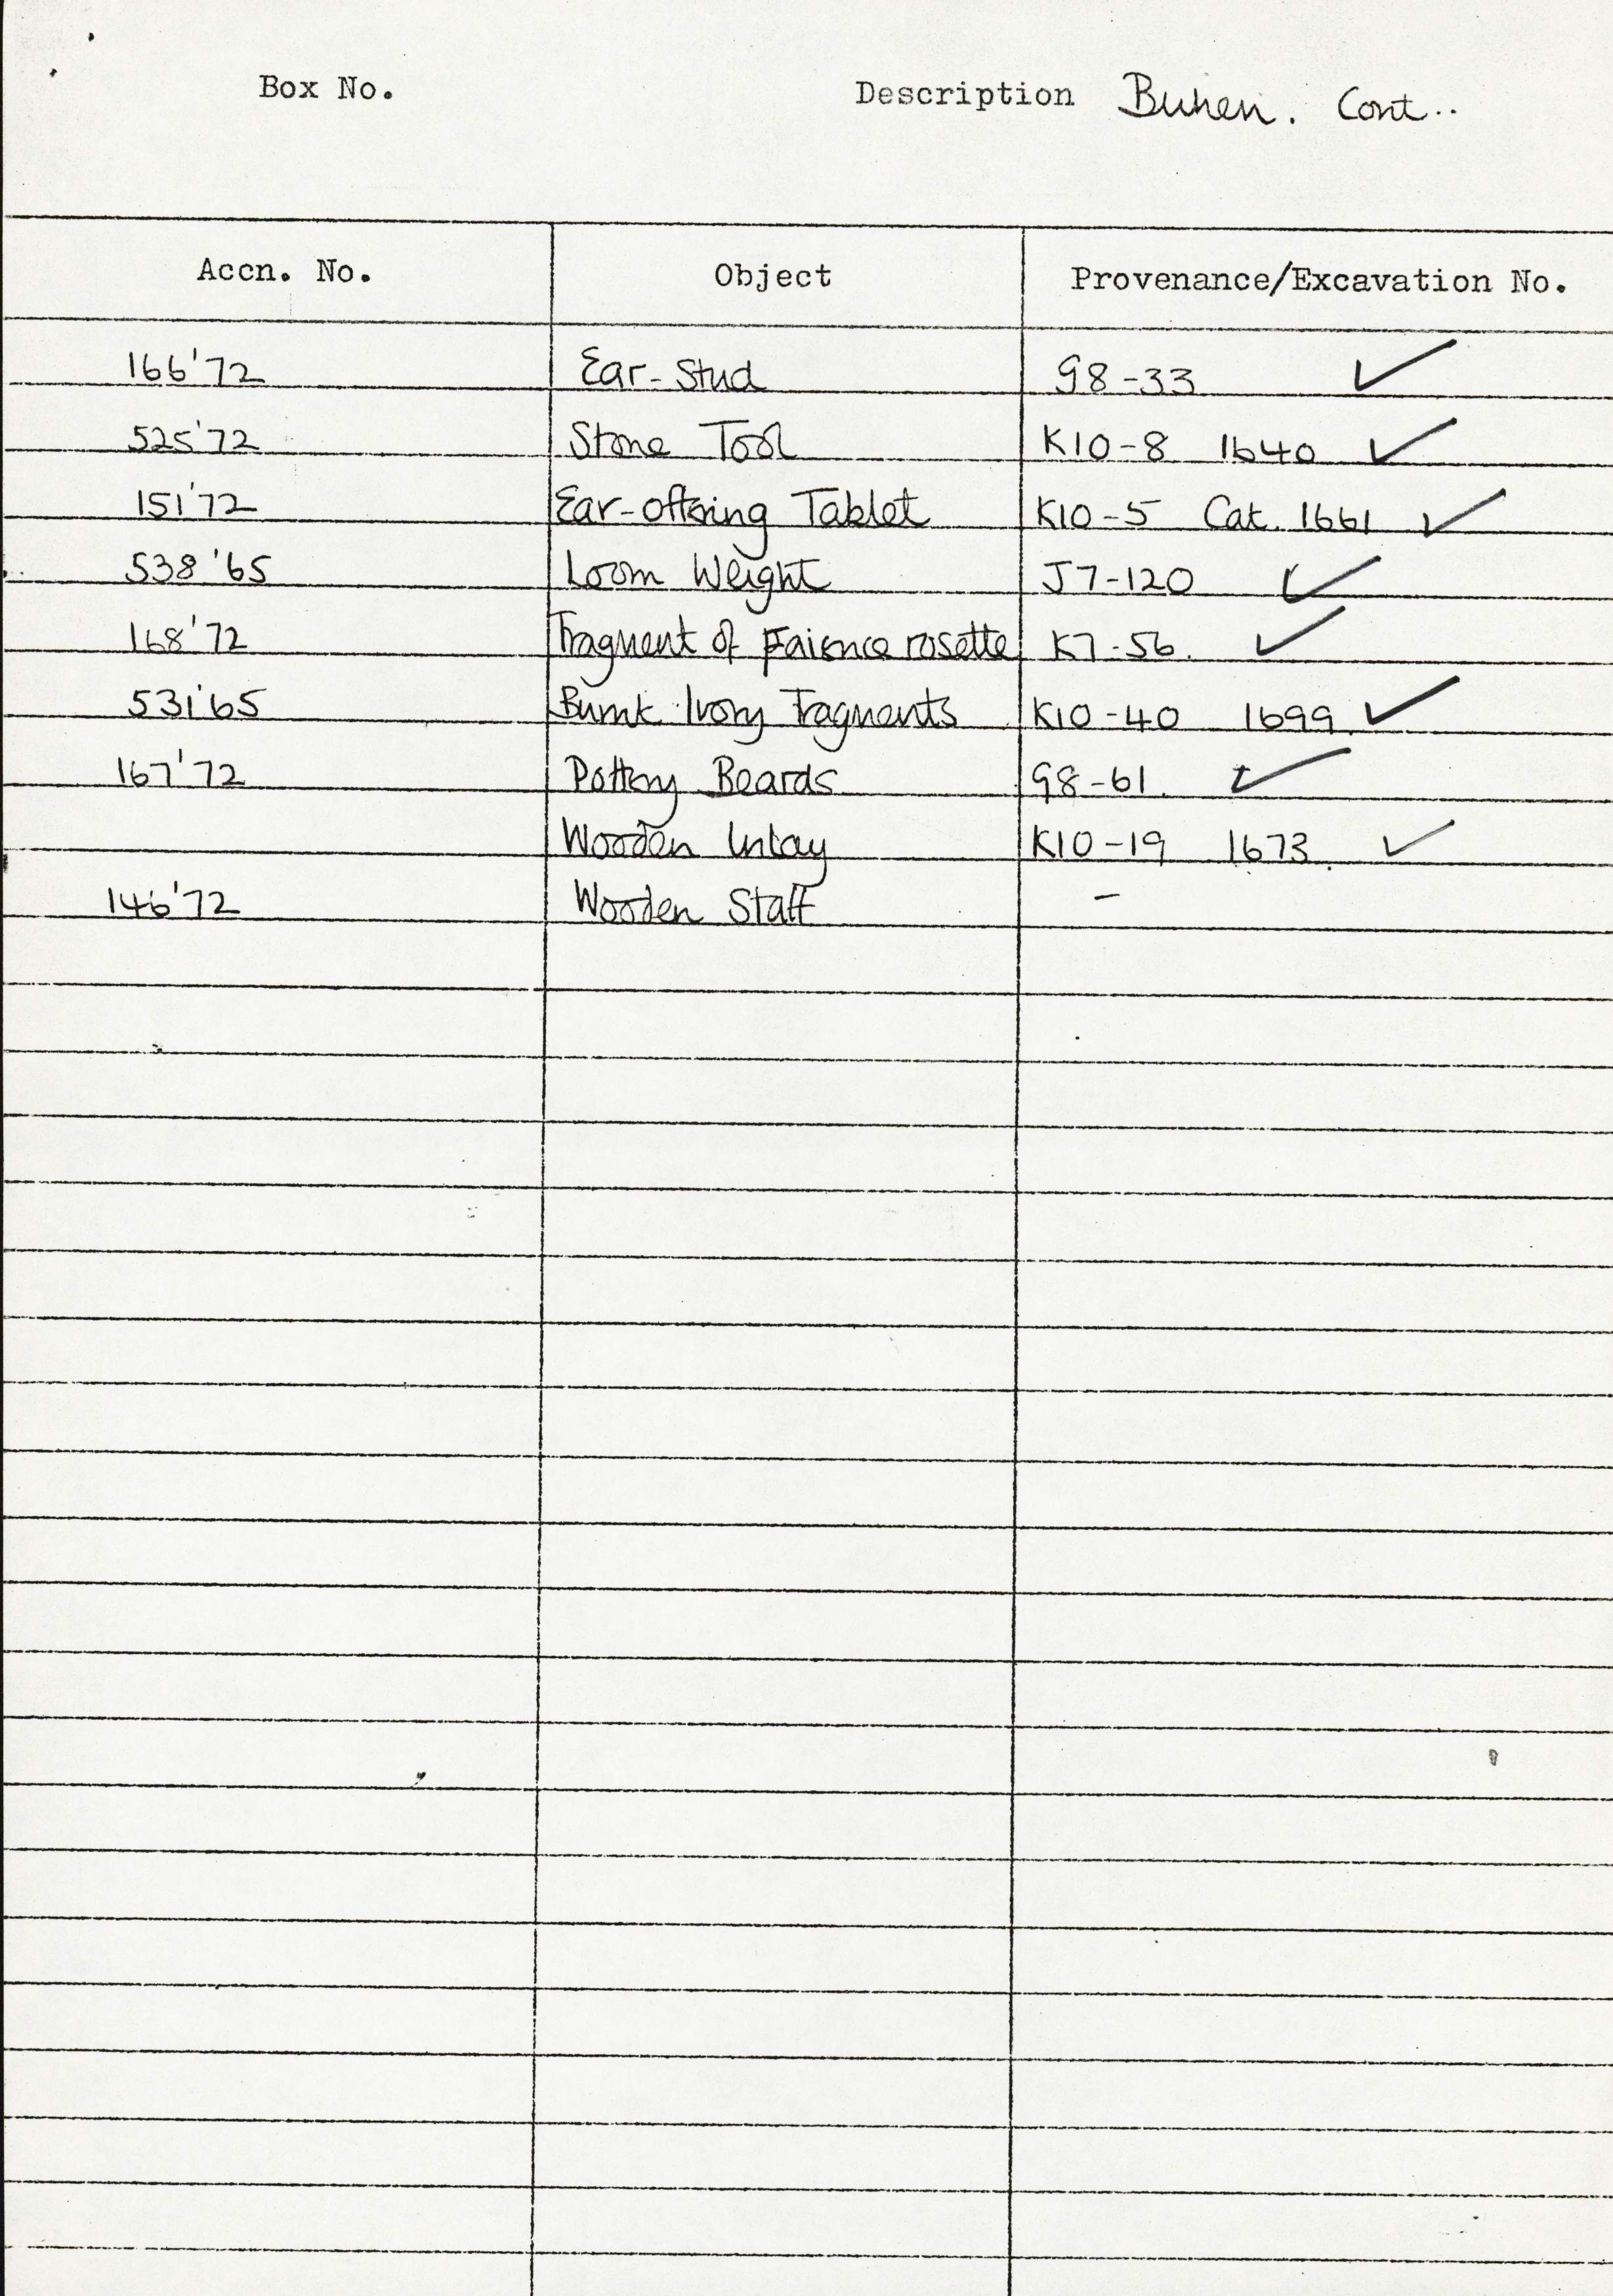 Box No. Description Buhen. Cont..
Accn. No. Object Provenance/Excavation No.
166'72 Ear-Stud G8-33 ✓
525'72 Stone Tool K10-8 1640 ✓
151'72 Ear-offering Tablet K10-5 Cat. 1661 ✓
538'65 Loom Weight J7-120 ✓
168'72 Fragment of Faience rosette K7-56. ✓
531'65 Burnt Ivory Fragments K10-40 1699 ✓
167'72 Pottery Beards G8-61. ✓
Wooden Inlay K10-19 1673. ✓
146'72 Wooden Staff –